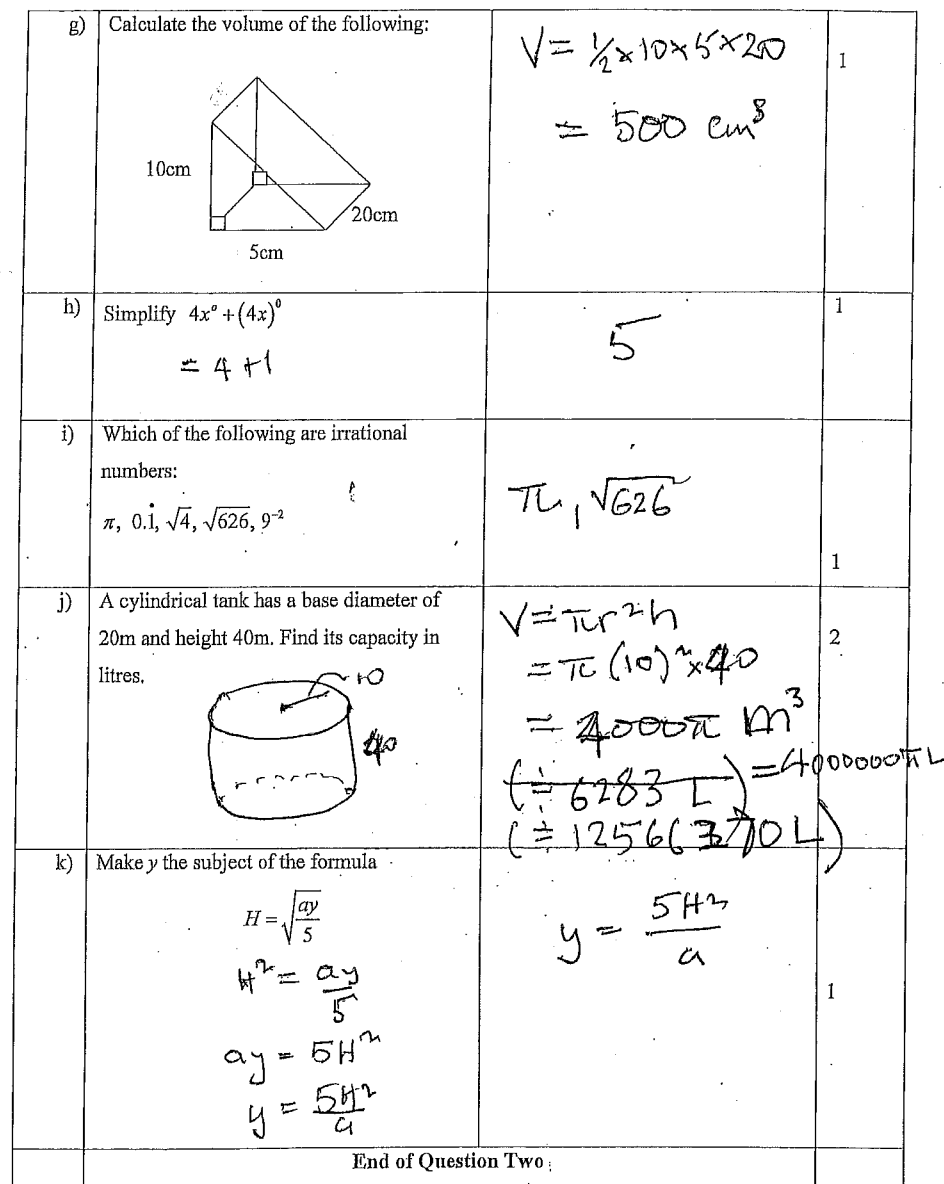 g) Calculate the volume of the following:
10cm
20cm
5cm
V = ½ × 10 × 5 × 20
= 500 cm³
1
h) Simplify 4x⁰ + (4x)⁰
= 4 + 1
5
1
i) Which of the following are irrational
numbers:
π, 0.1̇, √4, √626, 9⁻²
π, √626
1
j) A cylindrical tank has a base diameter of
20m and height 40m. Find its capacity in
litres.
10
40
V = πr²h
= π(10)² × 40
= 4000π m³
(≑ 6283 L) = 4000000π L
(≑ 12566370 L)
2
k) Make y the subject of the formula
H = √(ay/5)
H² = ay/5
ay = 5H²
y = 5H²/a
y = 5H²/a
1
End of Question Two